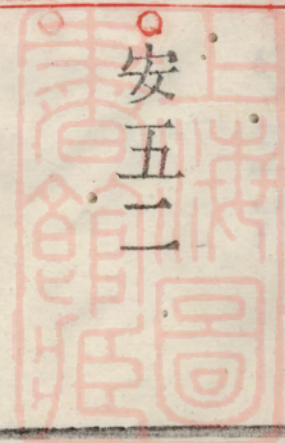 安五二
上海圖
書館藏